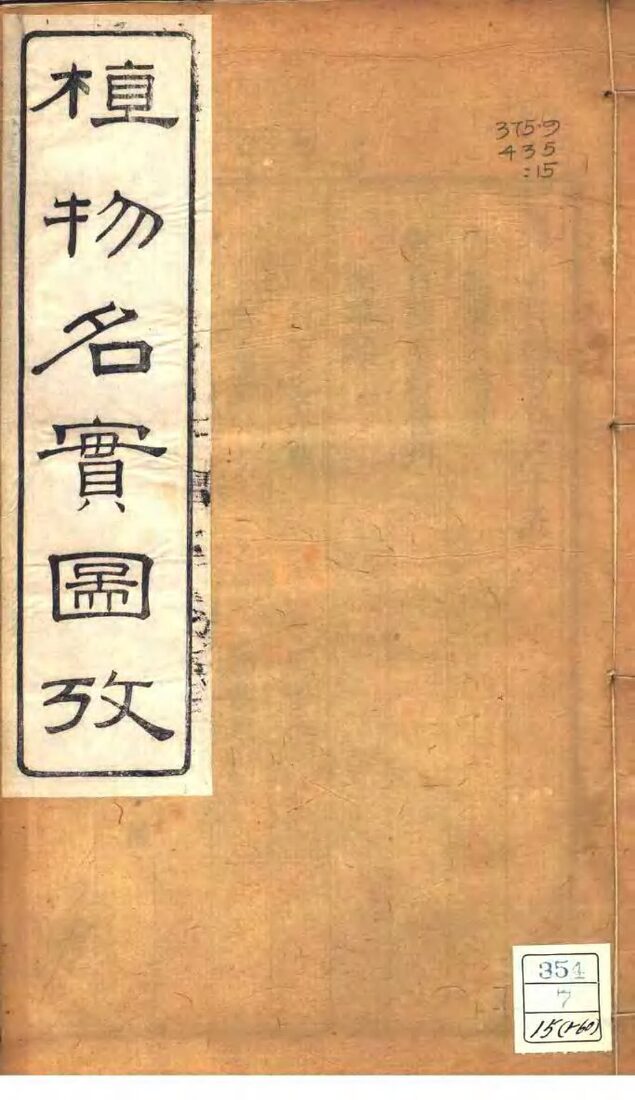 植物名實圖攷
375·9
435
:15
354
7
15(v60)